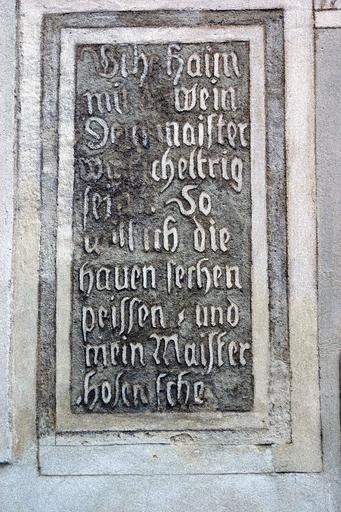 Geh Haim
mi wein
Dein maister
scheltrig
sein So
will ich die
hauen sechen
peissen und
mein Maister
hosen sche